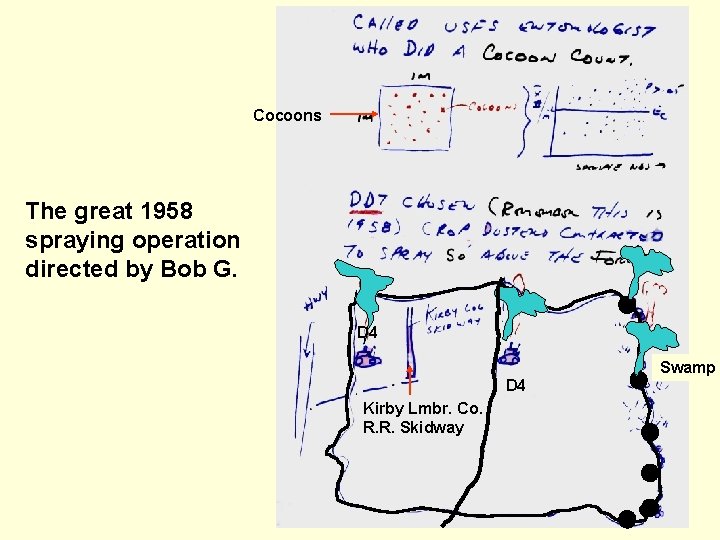 CALLED USFS ENTOMOLOGIST
WHO DID A COCOON COUNT.
1M
Cocoons
1M
COCOONS
The great 1958
spraying operation
directed by Bob G.
DDT CHOSEN (REMEMBER THIS IS
1958) CROP DUSTERS CONTRACTED
TO SPRAY 50' ABOVE THE
HWY
KIRBY LOG
SKIDWAY
D4
Swamp
D4
Kirby Lmbr. Co.
R. R. Skidway